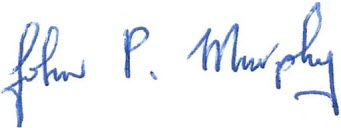 John P. Murphy